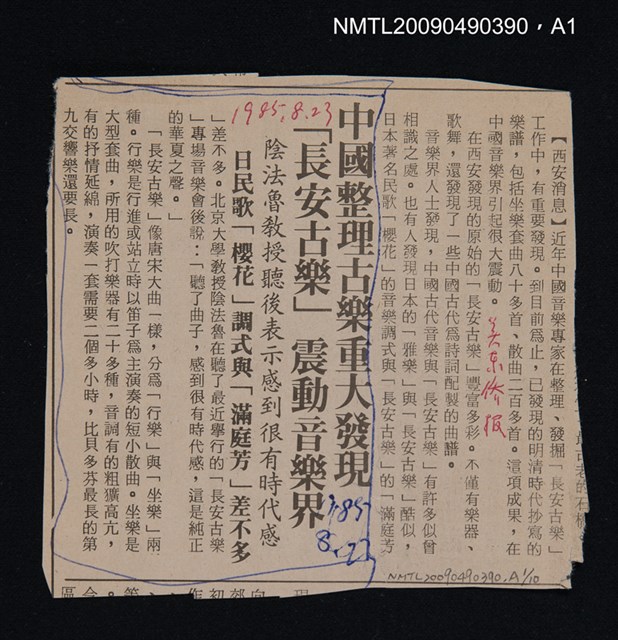 NMTL20090490390，A1
1985.8.23
中國整理古樂重大發現
「長安古樂」震動音樂界
陰法魯教授聽後表示感到很有時代感
日民歌「櫻花」調式與「滿庭芳」差不多
1985
8.23
美東僑報
【西安消息】近年中國音樂專家在整理、發掘「長安古樂」
工作中，有重要發現。到目前爲止，已發現的明清時代抄寫的
樂譜，包括坐樂套曲八十多首、散曲二百多首。這項成果，在
中國音樂界引起很大震動。
在西安發現的原始的「長安古樂」豐富多彩。不僅有樂器、
歌舞，還發現了一些中國古代爲詩詞配製的曲譜。
音樂界人士發現，中國古代音樂與「長安古樂」有許多似曾
相識之處。也有人發現日本的「雅樂」與「長安古樂」酷似，
日本著名民歌「櫻花」的音樂調式與「長安古樂」的「滿庭芳
」差不多。北京大學教授陰法魯在聽了最近舉行的「長安古樂
」專場音樂會後說：「聽了曲子，感到很有時代感，這是純正
的華夏之聲。」
「長安古樂」像唐宋大曲一樣，分爲「行樂」與「坐樂」兩
種。行樂是行進或站立時以笛子爲主演奏的短小散曲。坐樂是
大型套曲，所用的吹打樂器有二十多種，音調有的粗獷高亢，
有的抒情延綿，演奏一套需要二個多小時，比貝多芬最長的第
九交響樂還要長。
NMTL20090490390,A1/10